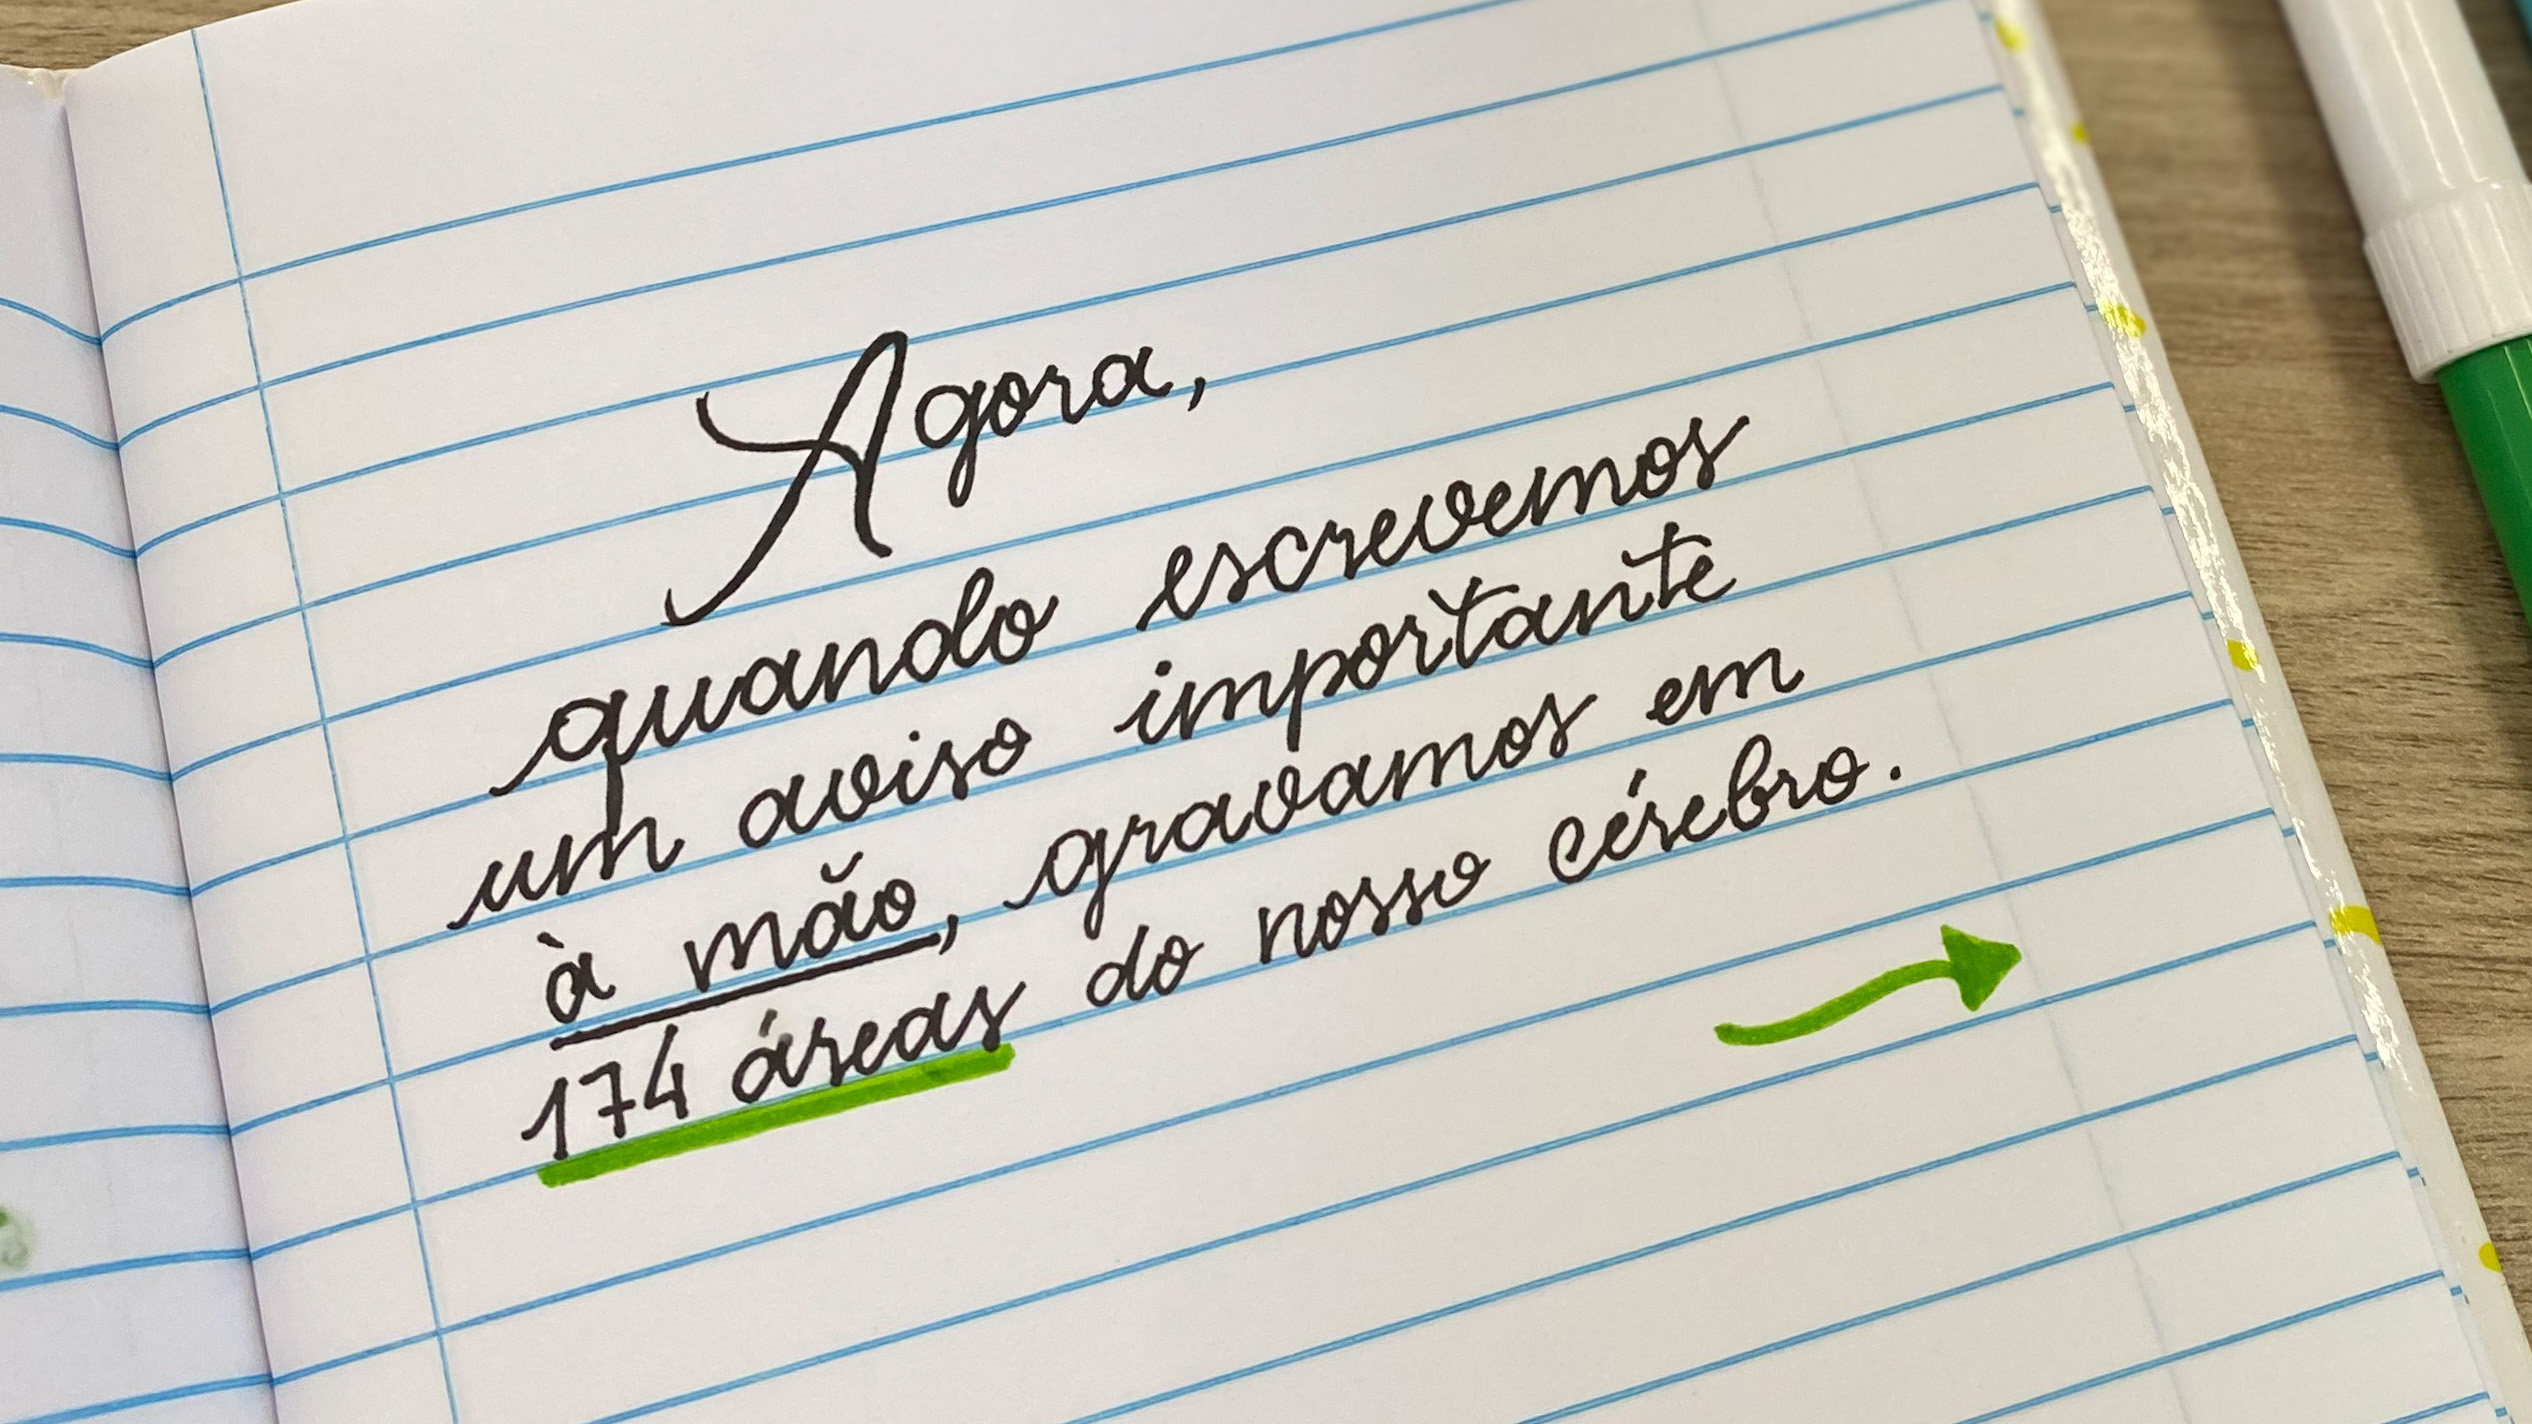 Agora,
quando escrevemos
um aviso importante
à mão, gravamos em
174 áreas do nosso cérebro.